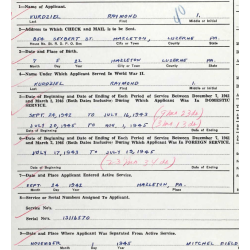 1—Name of Applicant.
KURDZIEL RAYMOND J.
Last First Initial
2—Address to Which CHECK and MAIL is to be Sent.
HAZLETON, LUZERNE PA.
House No. St. R. D. P. O. Box City or Town County State
3—Date and Place of Birth.
7 2 22 HAZLETON LUZERNE PA.
Month Day Year City or Town County State
4—Name Under Which Applicant Served In World War II.
KURDZIEL RAYMOND J.
Last First Initial
5—Date of Beginning and Date of Ending of Each Period of Service Between December 7, 1941
and March 2, 1946 (Both Dates Inclusive) During Which Applicant Was In DOMESTIC
SERVICE.
SEPT. 24, 1942 TO JULY 16, 1943
JULY 20, 1945 TO NOV.
6—Date of Beginning and Date of Ending of Each Period of Service Between December 7, 1941
and March 2, 1946 (Both Dates Inclusive) During Which Applicant Was In FOREIGN SERVICE.
JULY 17, 1943 TO JULY 1945
7—Date and Place Applicant Entered Active Service.
SEPT 24 1942 HAZLETON PA.
Month Day Year Place
8—Service or Serial Numbers Assigned To Applicant.
Service No.
Serial No. 13116576
9—Date and Place Where Applicant Was Separated From Active Service.
NOVEMBER 1945 MITCHEL FIELD